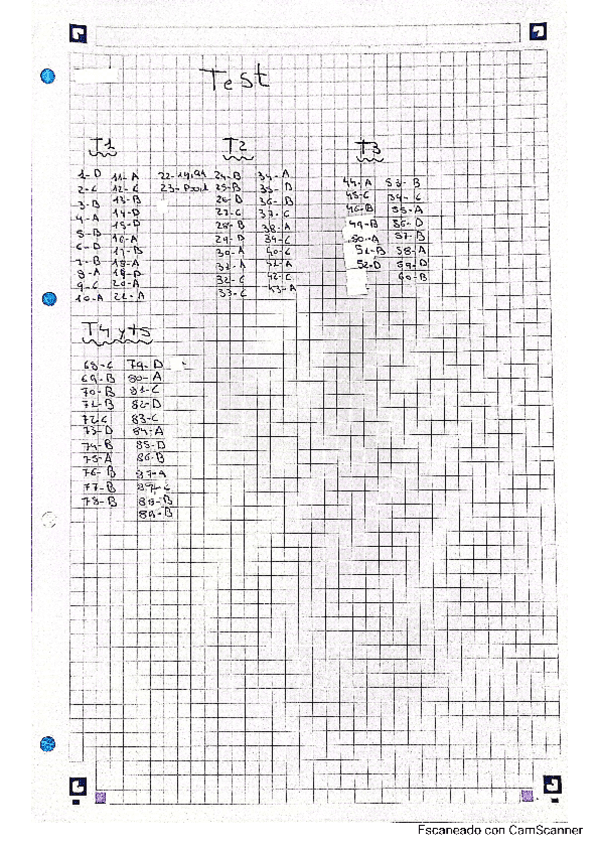 Test
T1
1-D
2-C
3-B
4-A
5-B
6-D
7-B
8-A
9-C
10-A
11-A
12-C
13-B
14-D
15-D
16-A
17-B
18-A
19-D
20-A
21-A
22-
23-
T2
24-B
25-B
26-D
27-C
28-B
29-D
30-A
31-A
32-C
33-C
34-A
35-D
36-D
37-C
38-A
39-C
40-C
41-A
42-C
43-A
T3
44-A
45-C
46-B
49-B
50-A
51-B
52-D
53-B
54-C
55-A
56-D
57-B
58-A
59-D
60-B
T4 y T5
68-C
69-B
70-B
71-B
72-C
73-D
74-B
75-A
76-B
77-B
78-B
79-D
80-A
81-C
82-D
83-C
84-A
85-D
86-B
87-A
88-B
89-B
Escaneado con CamScanner